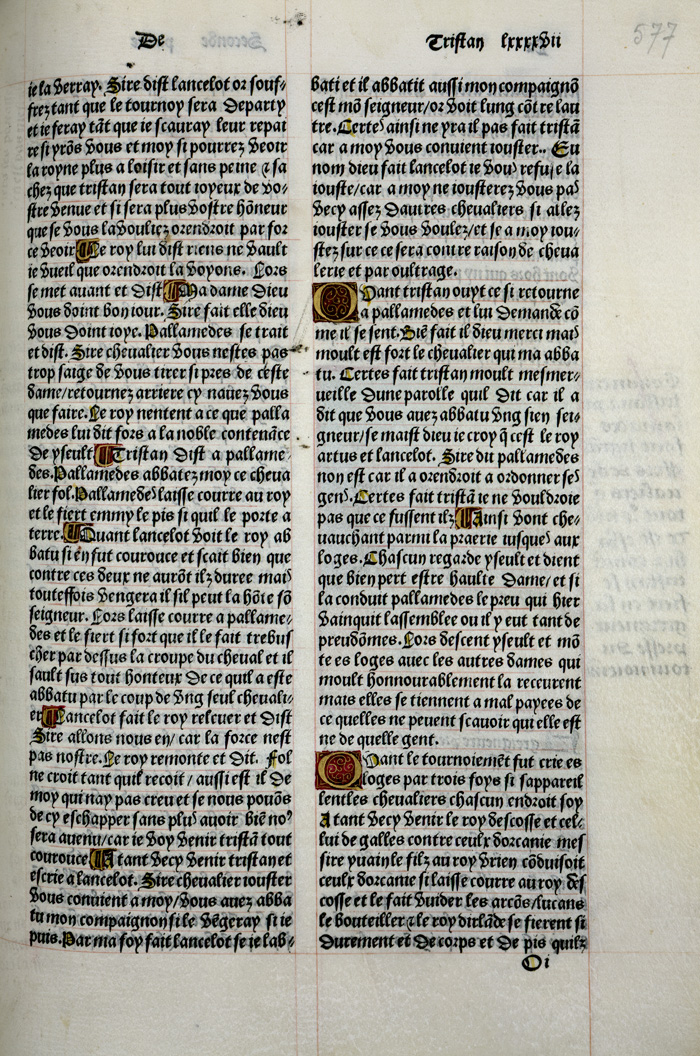 De
Tristan lxxxxvii
577
ie la verray. Sire dist lancelot or souf-
frez tant que le tournoy sera departy
et ie feray tāt que ie scauray leur repai
re si yrōs vous et moy si pourrez veoir
la royne plus a loisir et sans peine ⁊ sa
chez que tristan sera tout ioyeux de vo-
stre venue et si sera plus vostre hōneur
que se vous la vouliez orendroit par for
ce veoir Le roy lui dist riens ne vault
ie vueil que orendroit la voyons. Lors
se met auant et dist Ma dame dieu
vous doint bon iour. Sire fait elle dieu
vous doint ioye. Pallamedes se trait
et dist. Sire cheualier vous nestes pas
trop saige de vous tirer si pres de ceste
dame/retournez arriere cy nauez vous
que faire. Le roy nentent a ce que palla
medes lui dit fors a la noble contenāce
de yseult Tristan dist a pallame
des. Pallamedes abbatez moy ce cheua
lier fol. Pallamedes laisse courre au roy
et le fiert emmy le pis si quil le porte a
terre. Quant lancelot voit le roy ab
batu si en fut courouce et scait bien que
contre ces deux ne aurōt ilz duree mais
touteffois vengera il sil peut la hōte sō
seigneur. Lors laisse courre a pallame-
des et le fiert si fort que il le fait trebus
cher par dessus la croupe du cheual et il
sault sus tout honteux de ce quil a este
abbatu par le coup de vng seul cheuali-
er Lancelot fait le roy releuer et dist
Sire allons nous en/ car la force nest
pas nostre. Le roy remonte et dit. Fol
ne croit tant quil recoit / aussi est il de
moy qui nay pas creu et se nous pouōs
de cy eschapper sans plus auoir biē no9
sera auenu/car ie voy venir tristā tout
courouce A tant vecy venir tristan et
escrie a lancelot. Sire cheualier iouster
vous conuient a moy/vous auez abba
tu mon compaignon si le vēgeray si ie
puis. Par ma foy fait lancelot se ie lab-
bati et il abbatit aussi mon compaignō
cest mō seigneur/or voit lung cōtre lau
tre. Certes ainsi ne yra il pas fait tristā
car a moy vous conuient iouster.. Eu
nom dieu fait lancelot ie vous refuse la
iouste/car a moy ne iousterez vous pas
vecy assez dautres cheualiers si allez
iouster se vous voulez/et se a moy iou-
stez sur ce ce sera contre raison de cheua
lerie et par oultrage.
Quant tristan ouyt ce si retourne
a pallamedes et lui demande cō
me il se sent. Biē fait il dieu merci mais
moult est fort le cheualier qui ma abba
tu. Certes fait tristan moult mesmer-
ueille dune parolle quil dit car il a
dit que vous auez abbatu vng sien sei-
gneur/se maist dieu ie croy q̄ cest le roy
artus et lancelot. Sire dit pallamedes
non est car il a orendroit a ordonner ses
gens. Certes fait tristā ie ne vouldroie
pas que ce fussent ilz Ainsi vont che-
uauchant parmi la praerie iusques aux
loges. Chascun regarde yseult et dient
que bien pert estre haulte dame/et si
la conduit pallamedes le preu qui hier
vainquit lassemblee ou il y eut tant de
preudōmes. Lors descent yseult et mō
te es loges auec les autres dames qui
moult honnourablement la receurent
mais elles se tiennent a mal payees de
ce quelles ne peuent scauoir qui elle est
ne de quelle gent.
Quant le tournoiemēt fut crie es
loges par trois foys si sappareil
lent les cheualiers chascun endroit soy
A tant vecy venir le roy descosse et cel-
lui de galles contre ceulx dorcanie mes
sire yuain le filz au roy vrien cōduisoit
ceulx dorcanie si laisse courre au roy des
cosse et le fait vuider les arcōs/lucans
le bouteiller ⁊ le roy dirlāde se fierent si
durement et de corps et de pis quilz
Oi